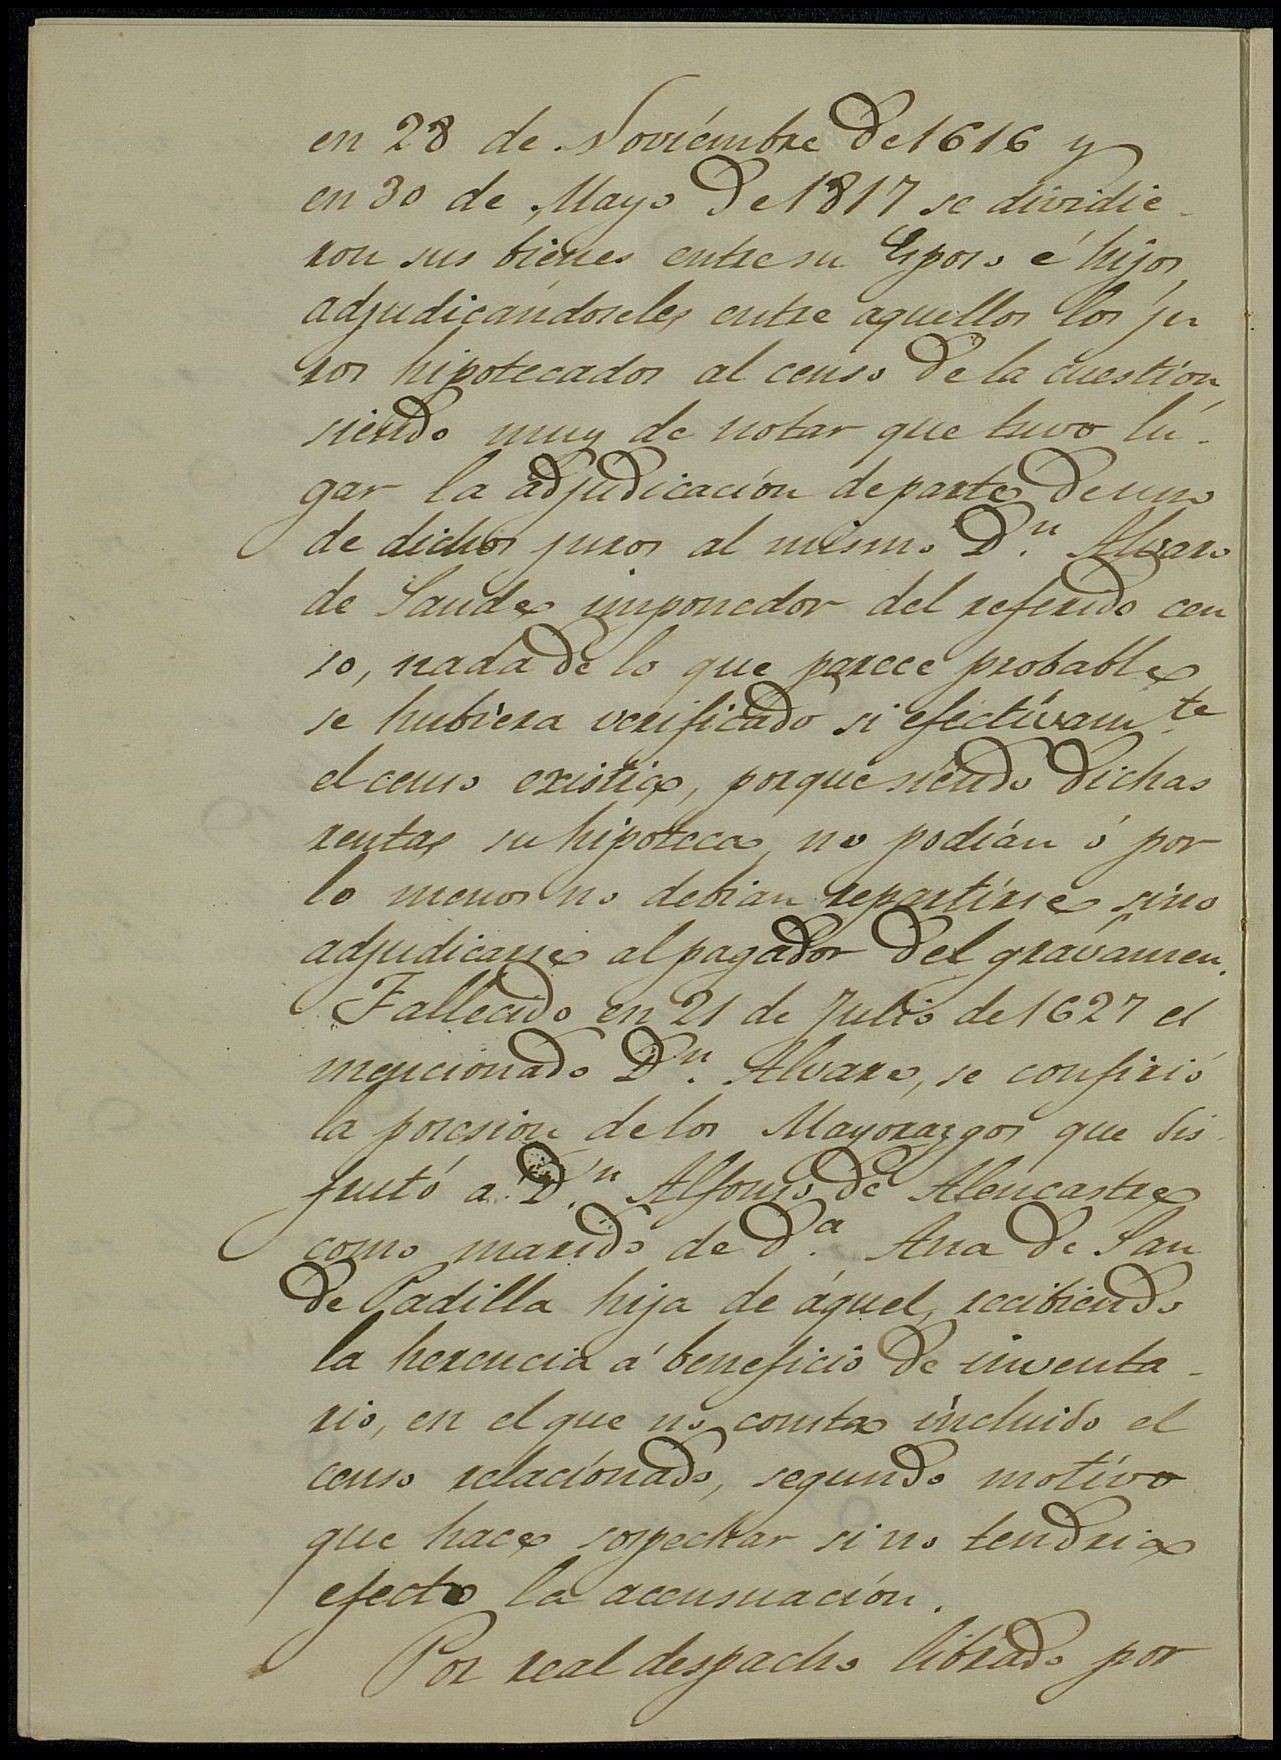 en 28 de Noviémbre de 1616 y
en 30 de Mayo de 1817 se dividie-
ron sus bienes entre su Esposo é hijos,
adjudicándoseles entre aquellos los ju
ros hipotecados al censo de la cuestión,
siendo muy de notar que tuvo lu-
gar la adjudicación de parte de uno
de dichos juros al mismo Dn. Alvaro
de Sande imponedor del referido cen
so, nada de lo que parece probable
se hubiera verificado si efectivamte
el censo existia, porque siendo dichas
rentas su hipoteca, no podían ó por
lo menos no debian repartirse sino
adjudicarse al pagador del gravámen.
Fallecido en 21 de Julio de 1627 el
mencionado Dn. Alvaro, se confirió
la posesion de los Mayorazgos que dis
frutó a Dn. Alfonso de Alencastre
como marido de Da. Ana de San
de Padilla hija de áquel, recibiendo
la herencia á beneficio de inventa-
rio, en el que no consta incluido el
censo relacionado, segundo motivo
que hace sospechar si no tendria
efecto la acensuación.
Por real despacho librado por